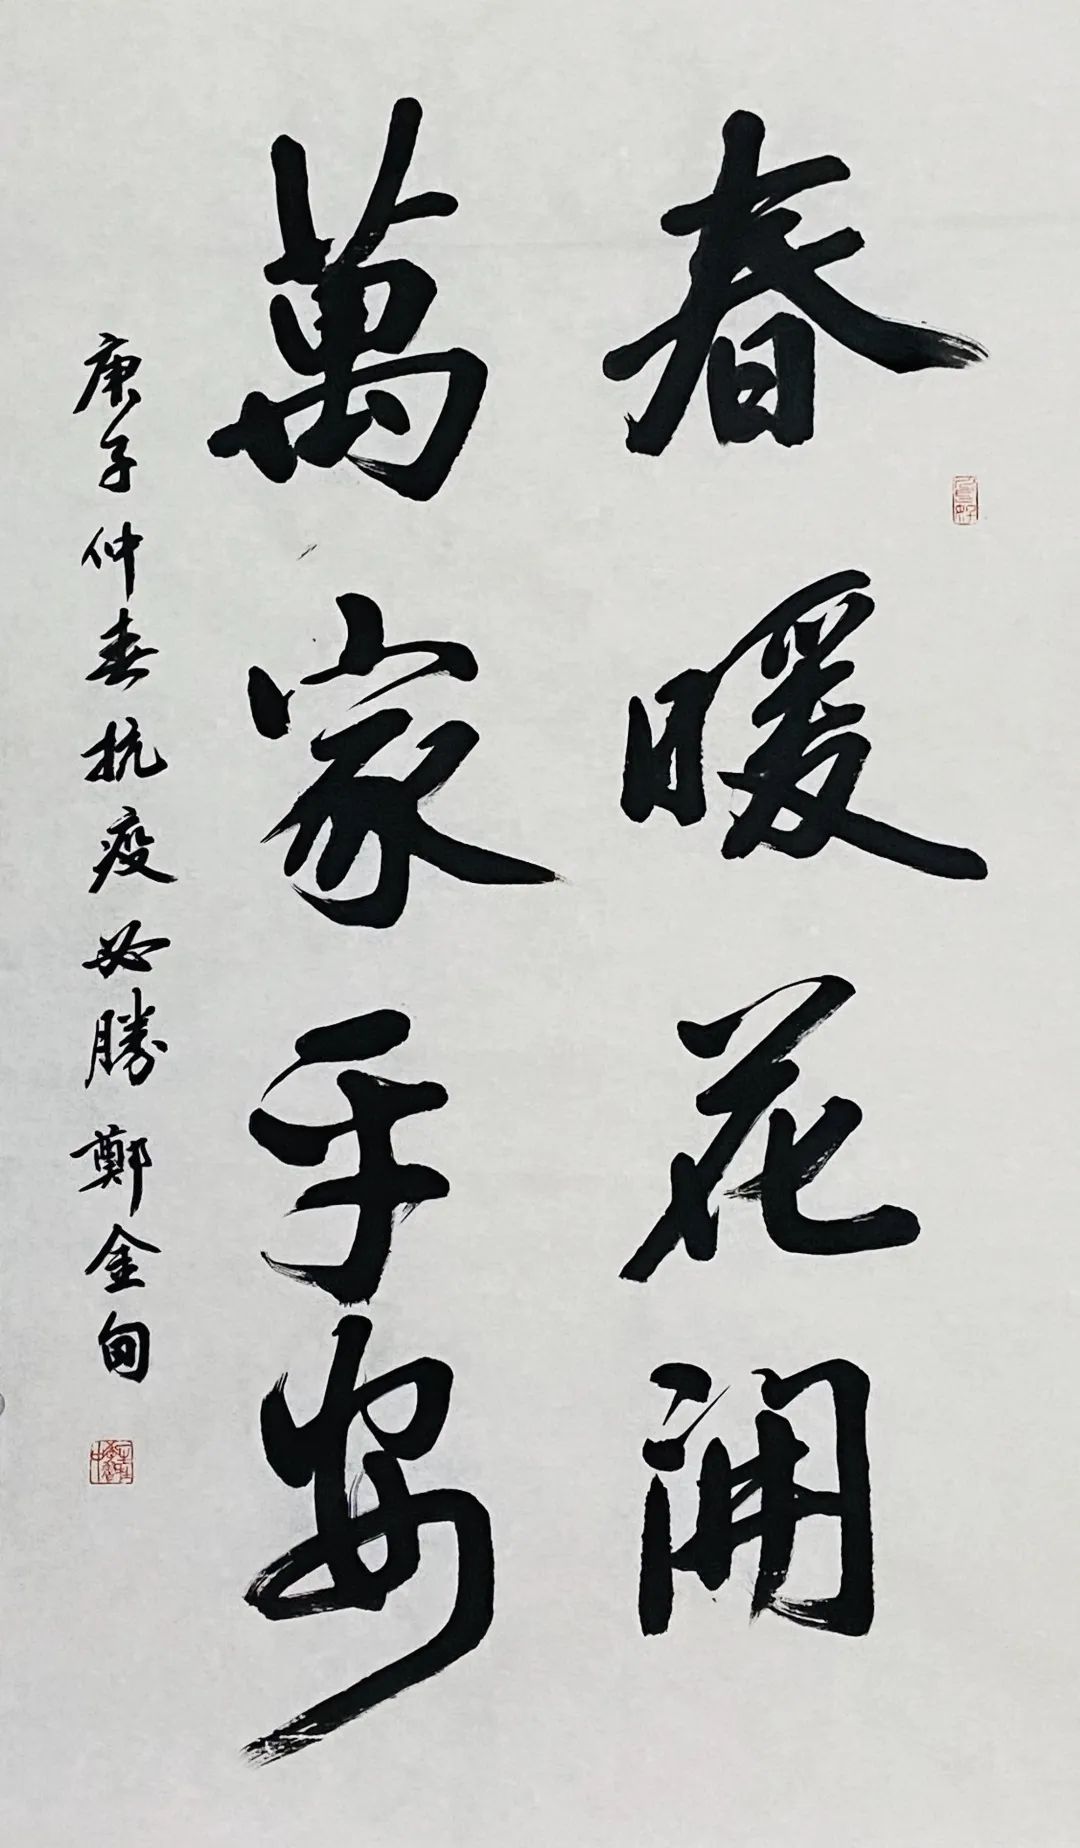 春暖花開
萬家平安
庚子仲春抗疫必勝 鄭金甸